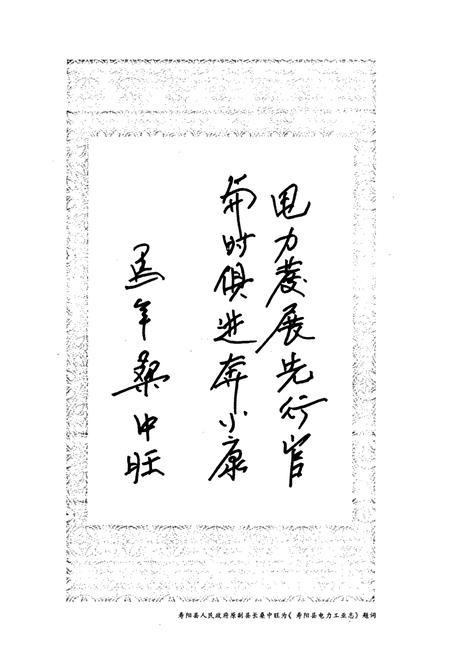 电力发展先行官
与时俱进奔小康
马年 桑中旺
寿阳县人民政府原副县长桑中旺为《寿阳县电力工业志》题词